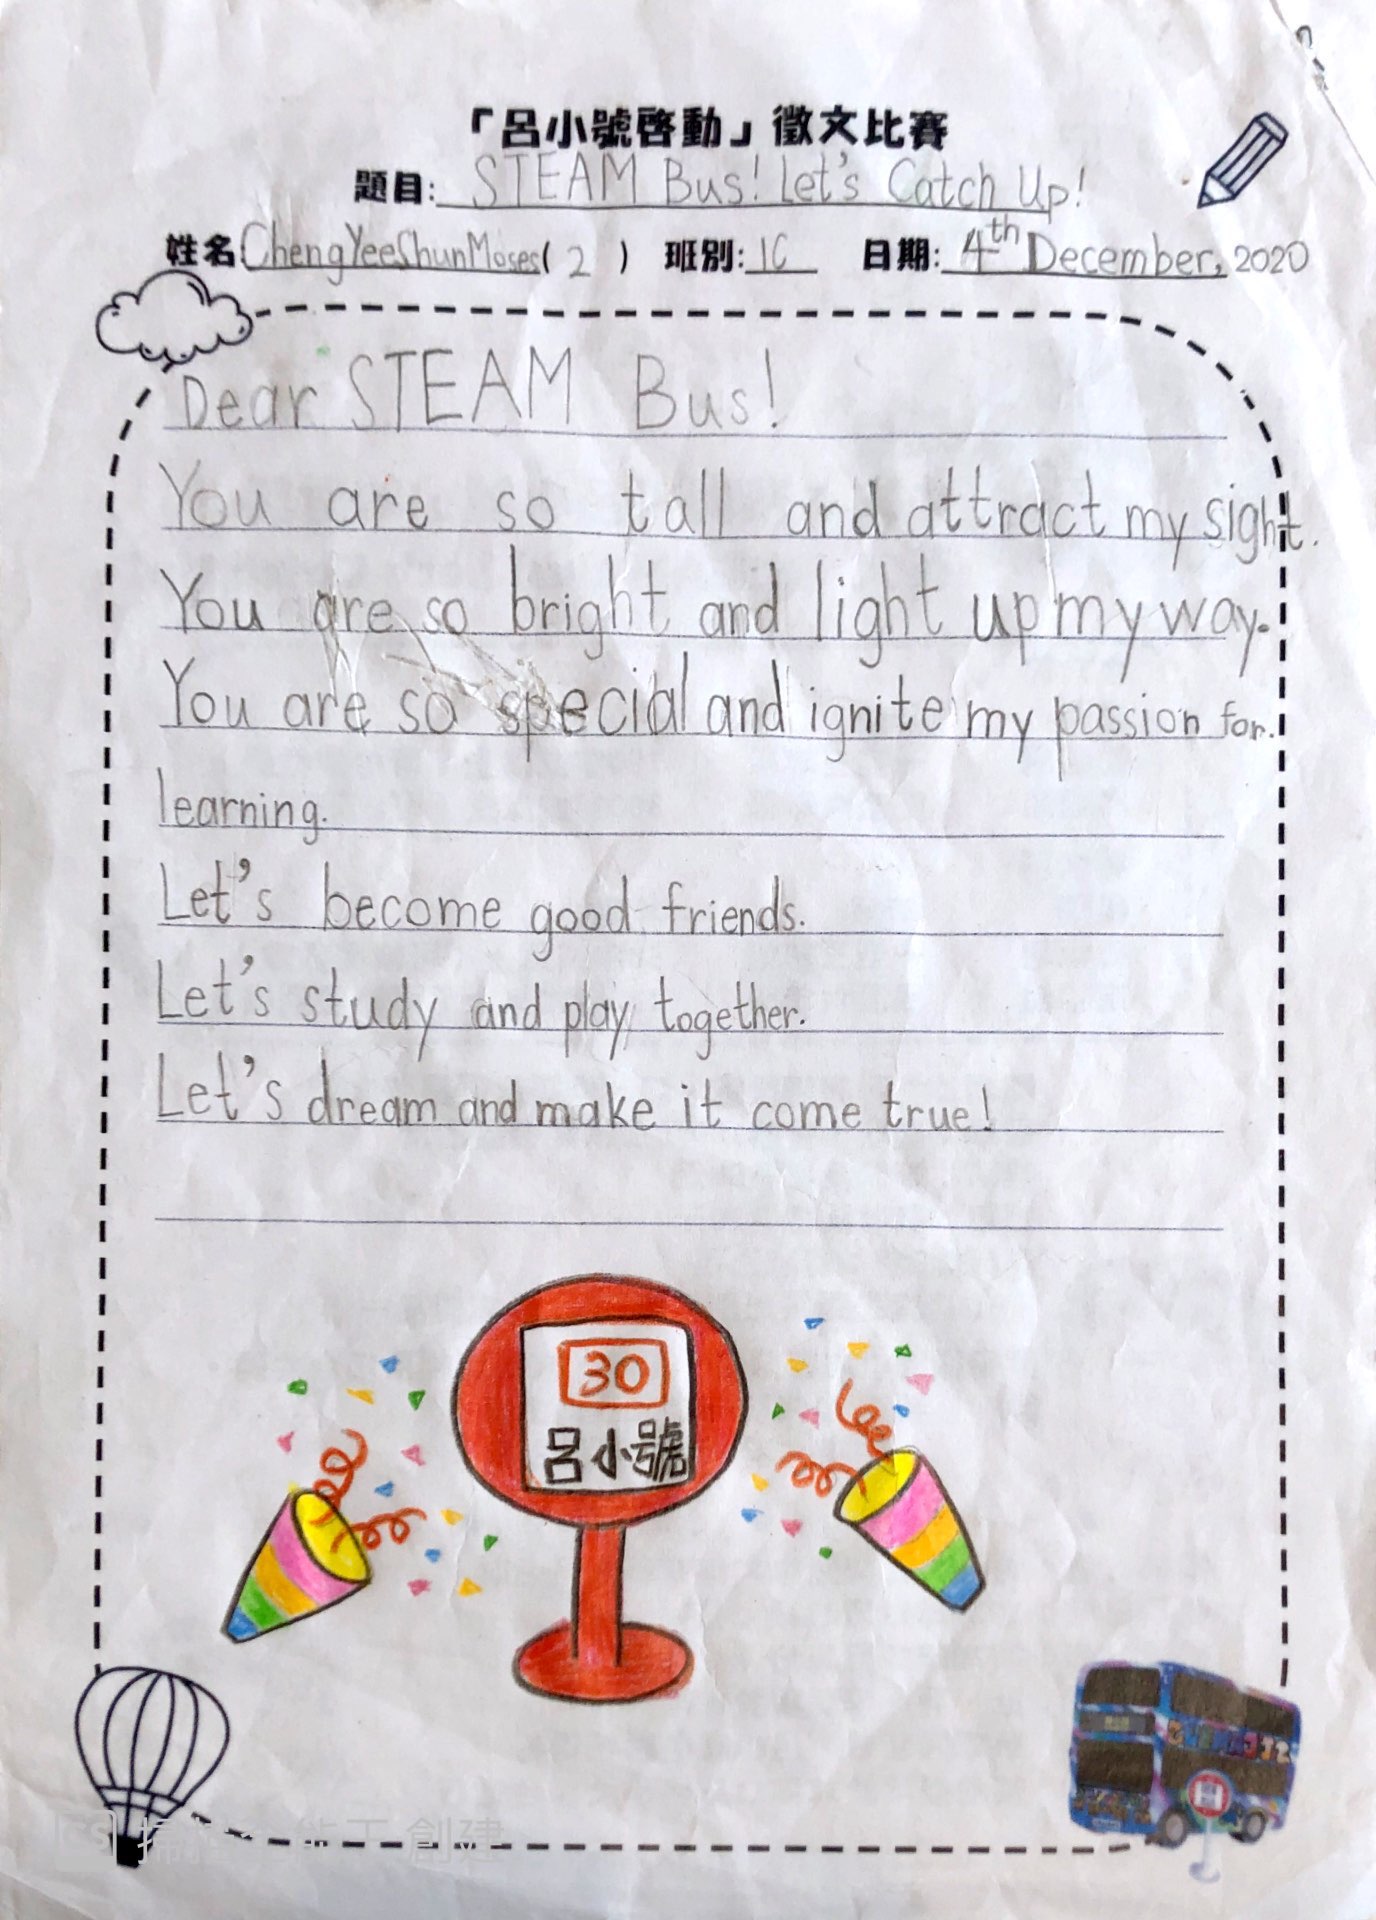 「呂小號啓動」徵文比賽
題目: STEAM Bus! Let's Catch Up!
姓名 ChengYeeShunMoses( 2 ) 班別: 1C 日期: 4th December, 2020
Dear STEAM Bus!
You are so tall and attract my sight.
You are so bright and light up my way.
You are so special and ignite my passion for.
learning.
Let's become good friends.
Let's study and play together.
Let's dream and make it come true!
30
呂小號
CS 掃描全能王 創建